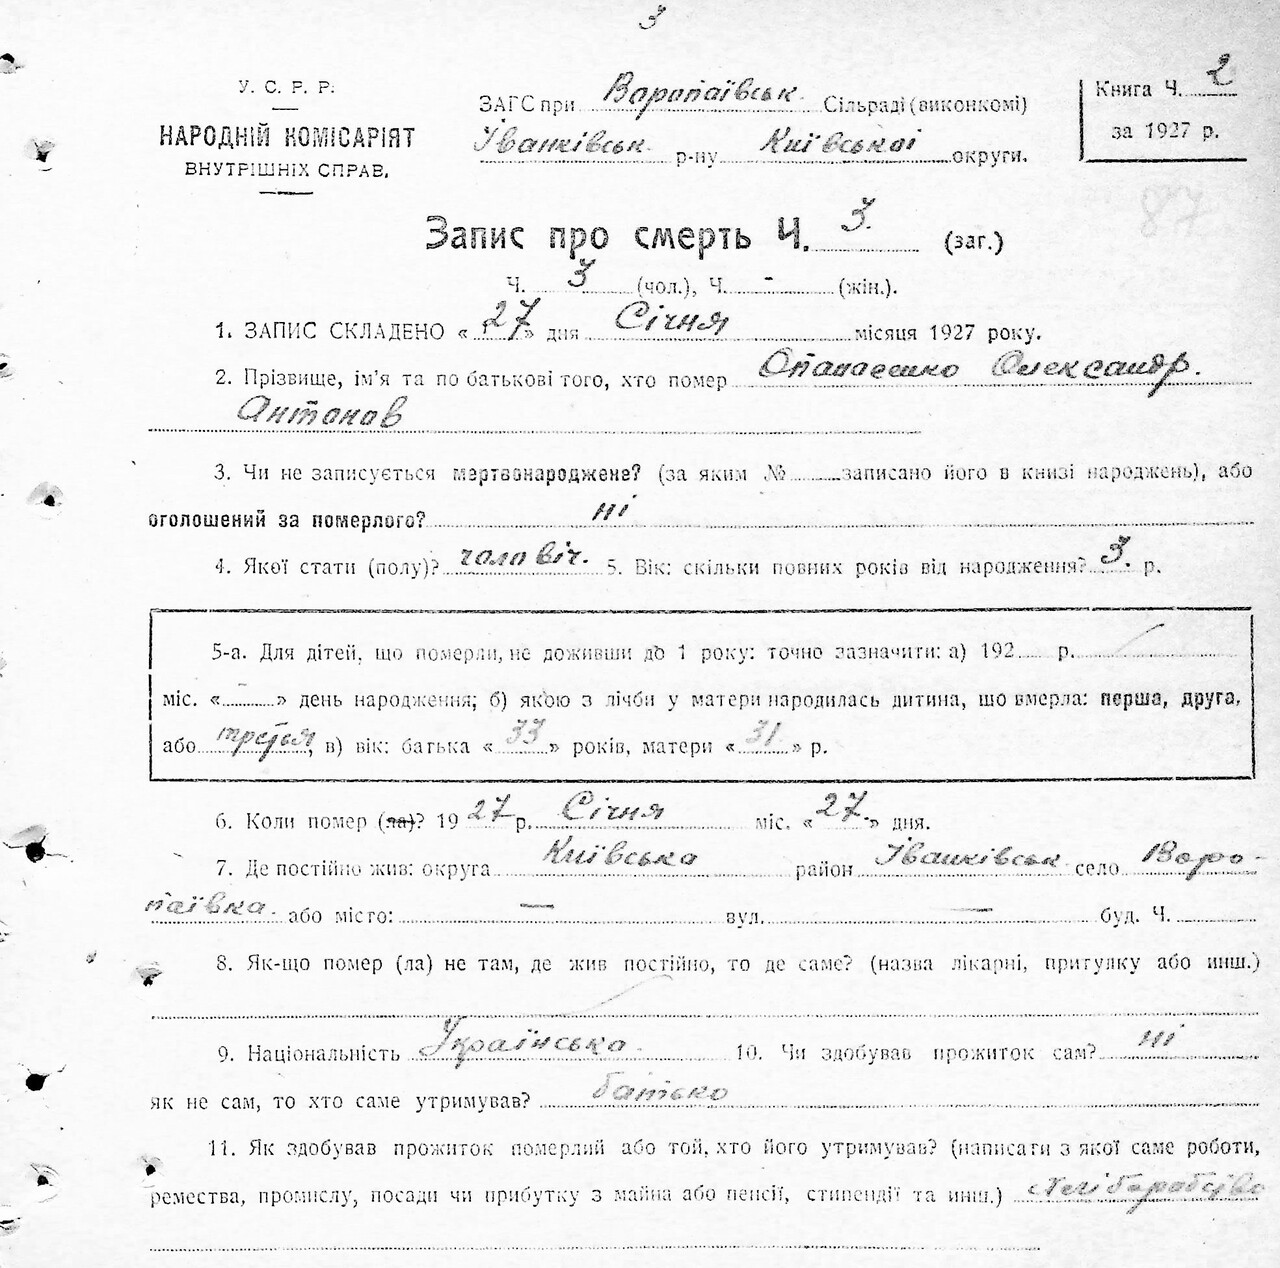 3
У. С. Р. Р.
НАРОДНІЙ КОМІСАРІЯТ
ВНУТРІШНІХ СПРАВ.
ЗАГС при Воропаївськ. Сільраді (виконкомі)
Іванківськ. р-ну Київської округи.
Книга Ч. 2
за 1927 р.
87
Запис про смерть Ч. 3. (заг.)
Ч. 3 (чол.), Ч. - (жін.).
1. ЗАПИС СКЛАДЕНО «27» дня Січня місяця 1927 року.
2. Прізвище, ім'я та по батькові того, хто помер Опанасенко Олександр.
Антонов
3. Чи не записується мертвонароджене? (за яким № записано його в книзі народжень), або
оголошений за померлого? ні
4. Якої стати (полу)? чоловіч. 5. Вік: скільки повних років від народження? 3. р.
5-а. Для дітей, що померли, не доживши до 1 року: точно зазначити: а) 192 р.
міс. «-» день народження; б) якою з лічби у матери народилась дитина, що вмерла: перша, друга,
або третья, в) вік: батька «33» років, матери «31» р.
6. Коли помер (ла)? 1927 р. Січня міс. «27.» дня.
7. Де постійно жив: округа Київська район Іванківськ. село Воро-
паївка. або місто: — вул. — буд. Ч.
8. Як-що помер (ла) не там, де жив постійно, то де саме? (назва лікарні, притулку або инш.)
9. Національність Українська. 10. Чи здобував прожиток сам? ні
як не сам, то хто саме утримував? батько
11. Як здобував прожиток померлий або той, хто його утримував? (написати з якої саме роботи,
ремества, промислу, посади чи прибутку з майна або пенсії, стипендії та инш.)